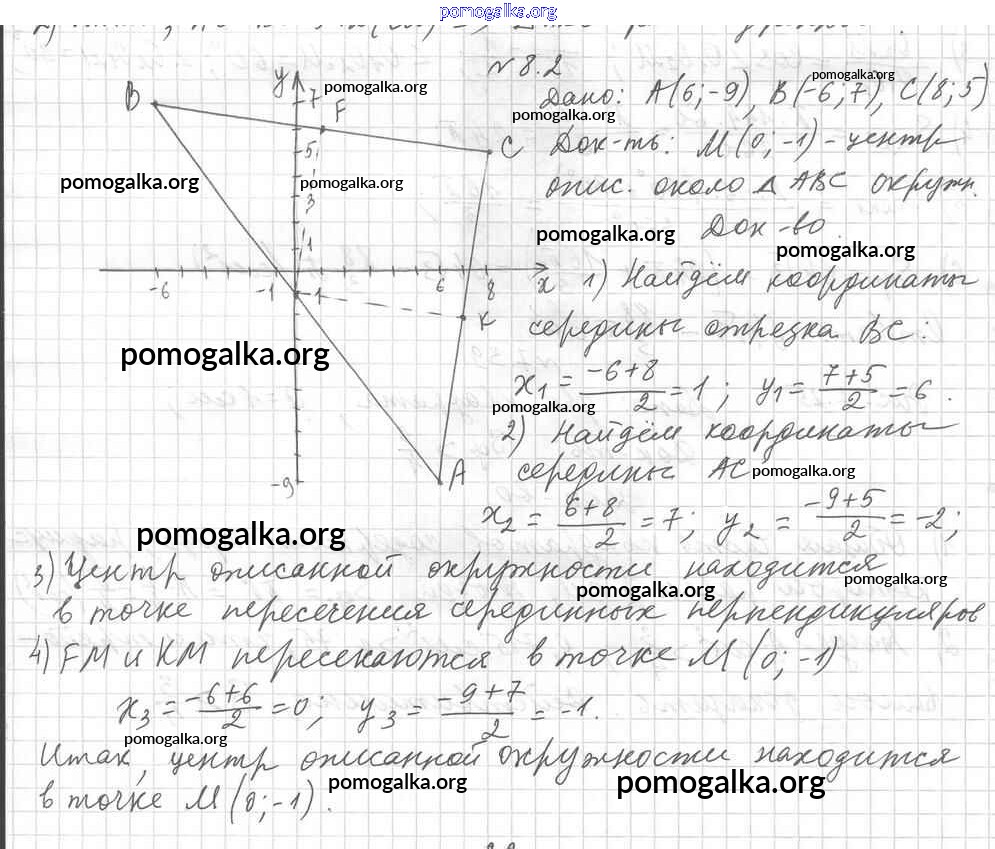 pomogalka.org
№ 8.2
y
B
7
F
pomogalka.org
pomogalka.org
Дано: A(6;-9), B(-6;7), C(8;5)
pomogalka.org
5
C
Док-ть: M(0;-1) - центр
pomogalka.org
pomogalka.org
3
опис. около Δ ABC окружн.
pomogalka.org
Док-во
pomogalka.org
1
-6
-1
-1
6
8
x
1) Найдём координаты
K
середины отрезка BC:
pomogalka.org
x1 = -6+8/2 = 1; y1 = 7+5/2 = 6.
pomogalka.org
2) Найдём координаты
-9
A
середины AC
pomogalka.org
x2 = 6+8/2 = 7; y2 = -9+5/2 = -2;
pomogalka.org
3) Центр описанной окружности находится
pomogalka.org
pomogalka.org
в точке пересечения серединных перпендикуляров
4) FM и KM пересекаются в точке M(0;-1)
x3 = -6+6/2 = 0; y3 = -9+7/2 = -1.
pomogalka.org
Итак, центр описанной окружности находится
pomogalka.org
pomogalka.org
в точке M(0;-1).